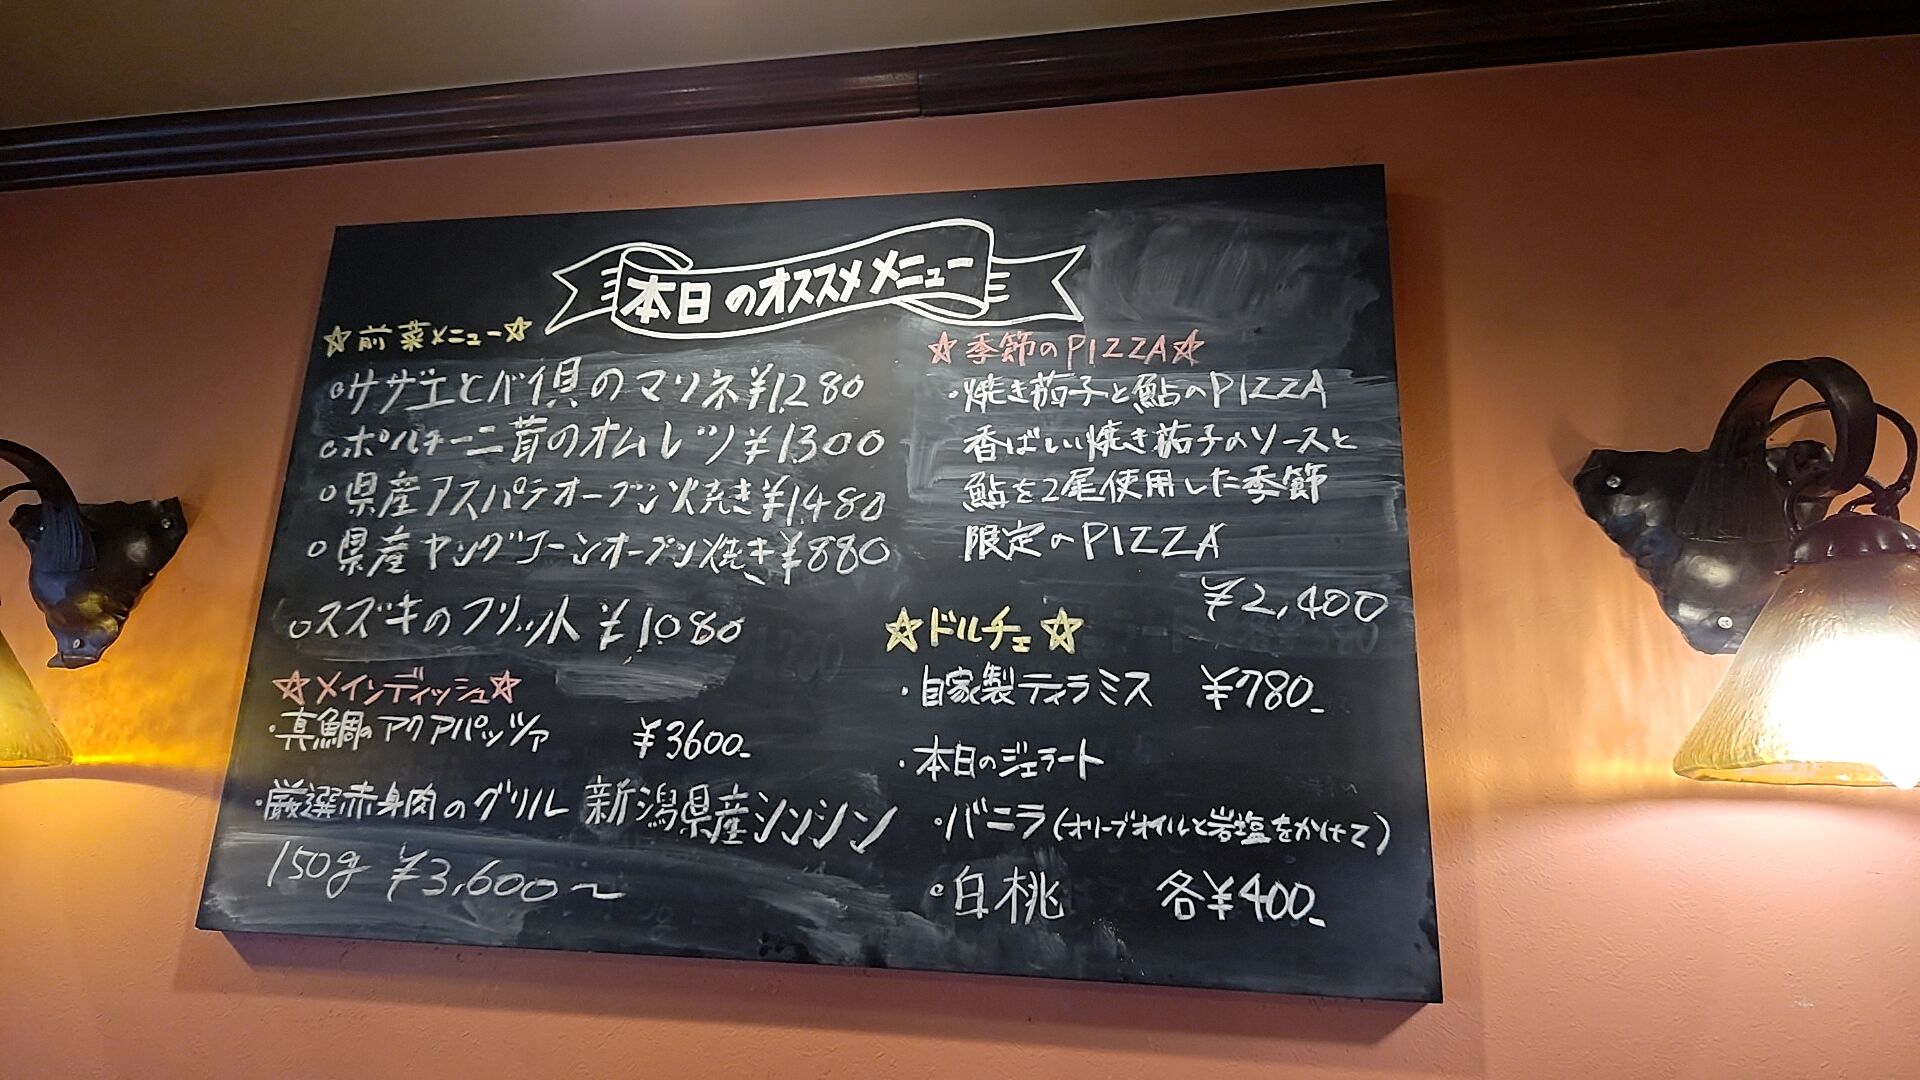 本日のオススメメニュー
☆前菜メニュー☆
○サザエとバイ貝のマリネ¥1,280
○ポルチーニ茸のオムレツ¥1,300
○県産アスパラオーブン焼き¥1,480
○県産ヤングコーンオーブン焼き¥880
○スズキのフリット¥1080
☆メインディッシュ☆
・真鯛のアクアパッツァ ¥3600-
・厳選赤身肉のグリル 新潟県産シンシン
150g ¥3,600～
☆季節のPIZZA☆
・焼き茄子と鮎のPIZZA
香ばしい焼き茄子のソースと
鮎を2尾使用した季節
限定のPIZZA
¥2,400
☆ドルチェ☆
・自家製ティラミス ¥780-
・本日のジェラート
○バニラ(オリーブオイルと岩塩をかけて)
○白桃 各¥400-